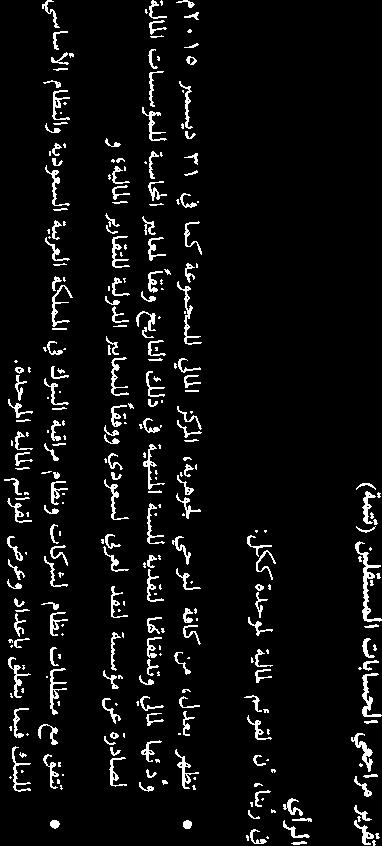 تقرير مراجعي الحسابات المستقلين (تتمة)
الرأي
في رأينا، أن القوائم المالية الموحدة ككل:
• تظهر بعدل، من كافة النواحي الجوهرية، المركز المالي للمجموعة كما في ٣١ ديسمبر ٢٠١٥م
وأدائها المالي وتدفقاتها النقدية للسنة المنتهية في ذلك التاريخ وفقاً لمعايير المحاسبة للمؤسسات المالية
الصادرة عن مؤسسة النقد العربي السعودي ووفقاً للمعايير الدولية للتقارير المالية؛ و
• تتفق مع متطلبات نظام الشركات ونظام مراقبة البنوك في المملكة العربية السعودية والنظام الأساسي
للبنك فيما يتعلق بإعداد وعرض القوائم المالية الموحدة.